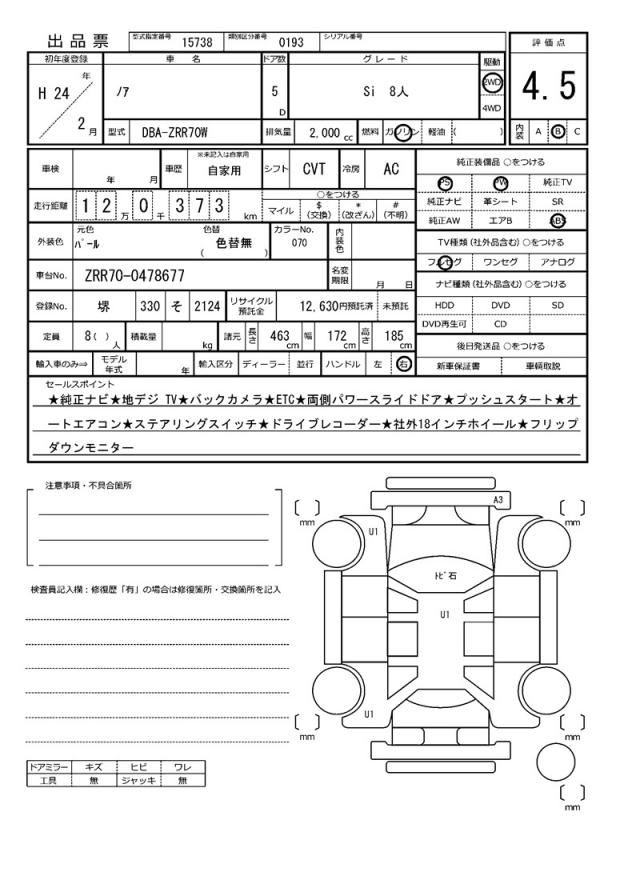 出品票 型式指定番号 15738 類別区分番号 0193 シリアル番号
評価点
4.5
内装 A B C
初年度登録 車名 ドア数 グレード 駆動
H 24 年 2 月 ノア 5 D Si 8人 2WD 4WD
型式 DBA-ZRR70W 排気量 2,000 cc 燃料 ガソリン 軽油 ( )
車検 年 月 車歴 ※未記入は自家用 自家用 シフト CVT 冷房 AC
走行距離 1 2 万 0 千 3 7 3 km
○をつける
マイル $ (交換) * (改ざん) # (不明)
外装色 元色 パール 色替 ( 色替無 ) カラーNo. 070 内装色
車台No. ZRR70-0478677 名変期限 月 日
登録No. 堺 330 そ 2124 リサイクル預託金 12,630円預託済 未預託
定員 8( ) 人 積載量 kg 諸元 長さ 463 cm 幅 172 cm 高さ 185 cm
輸入車のみ⇒ モデル年式 年 輸入区分 ディーラー 並行 ハンドル 左 右
純正装備品 ○をつける
PS PW 純正TV
純正ナビ 革シート SR
純正AW エアB ABS
TV種類 (社外品含む) ○をつける
フルセグ ワンセグ アナログ
ナビ種類 (社外品含む) ○をつける
HDD DVD SD
DVD再生可 CD
後日発送品 ○をつける
新車保証書 車輌取説
セールスポイント
★純正ナビ★地デジ TV★バックカメラ★ETC★両側パワースライドドア★プッシュスタート★オ
ートエアコン★ステアリングスイッチ★ドライブレコーダー★社外18インチホイール★フリップ
ダウンモニター
注意事項・不具合箇所
検査員記入欄：修復歴「有」の場合は修復箇所・交換箇所を記入
ドアミラー キズ ヒビ ワレ
工具 無 ジャッキ 無
A3
mm
mm
U1
トビ石
U1
U1
mm
mm
mm